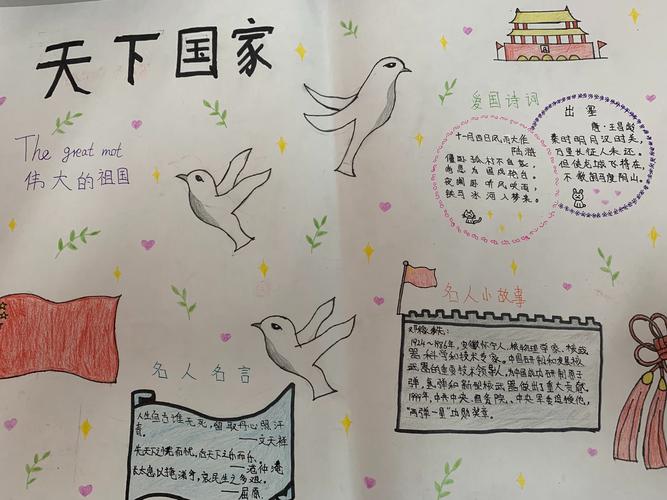 天下国家
The great mot
伟大的祖国
爱国诗词
十一月四日风雨大作
陆游
僵卧孤村不自哀,
尚思为国戍轮台。
夜阑卧听风吹雨,
铁马冰河入梦来。
出塞
唐·王昌龄
秦时明月汉时关,
万里长征人未还。
但使龙城飞将在,
不教胡马度阴山。
名人名言
人生自古谁无死,留取丹心照汗
青。
——文天祥
先天下之忧而忧,后天下之乐而乐。
——范仲淹
太息以掩涕兮,哀民生之多艰。
——屈原
名人小故事
邓稼先:
1924~1986年,安徽怀宁人,核物理学家,核武
器科学和技术专家。中国研制和发展核
武器的重要技术领导人,为中国成功研制原子
弹,氢弹和新型核武器做出了重大贡献。
1999年,中共中央、国务院、中央军委追授他,
"两弹一星"功勋奖章。